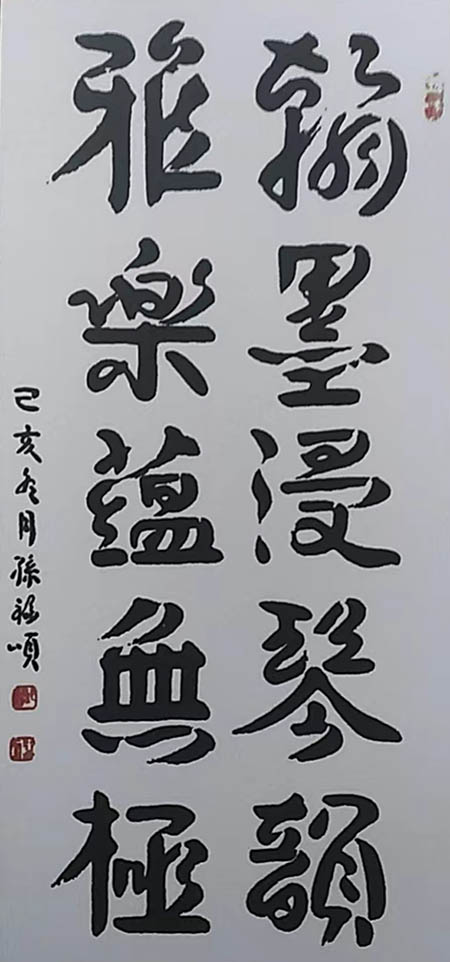 翰墨浸琴韻
雅樂蘊無極
己亥冬月孫福順